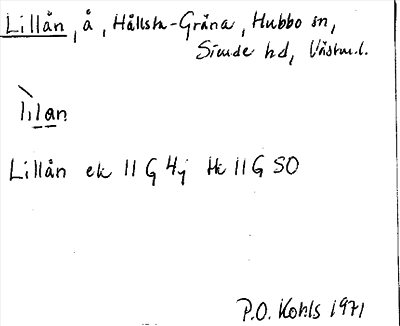 Lillån, å, Hållsta-Gräna, Hubbo sn,
Siende hd, Västm.l.
Lillån ek 11 G 4j tk 11 G SO
P.O. Kohls 1971